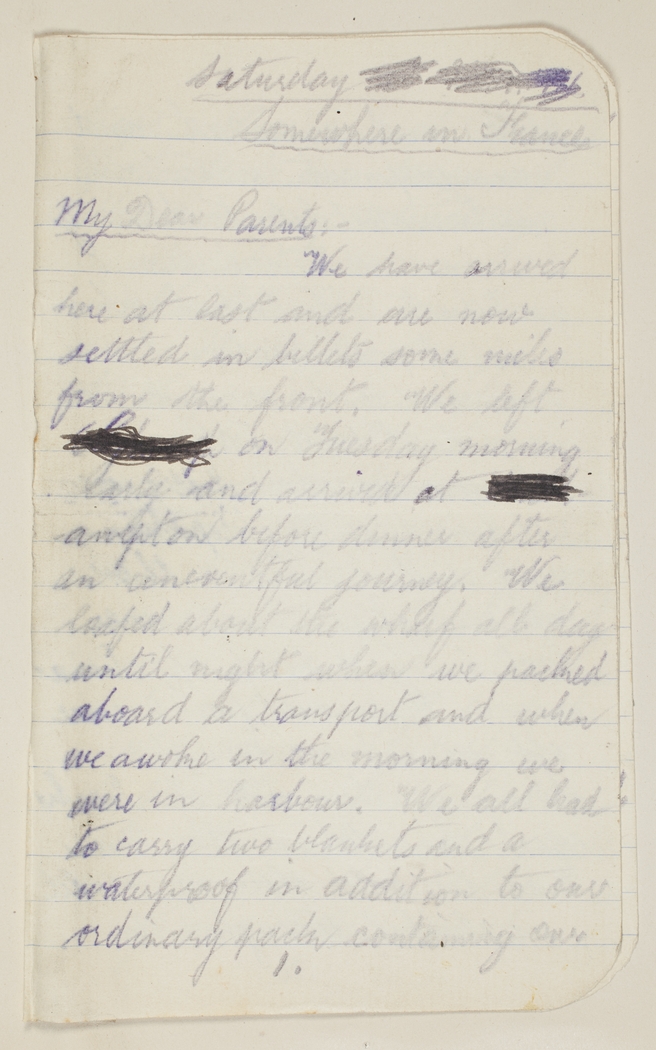 Saturday
Somewhere in France
My Dear Parents:-
We have arrived
here at last and are now
settled in billets some miles
from the front. We left
on Tuesday morning
early and arrived at
ampton before dinner after
an uneventful journey. We
loafed about the wharf all day
until night when we packed
aboard a transport and when
we awoke in the morning we
were in harbour. We all had
to carry two blankets and a
waterproof in addition to our
ordinary pack containing our
1.